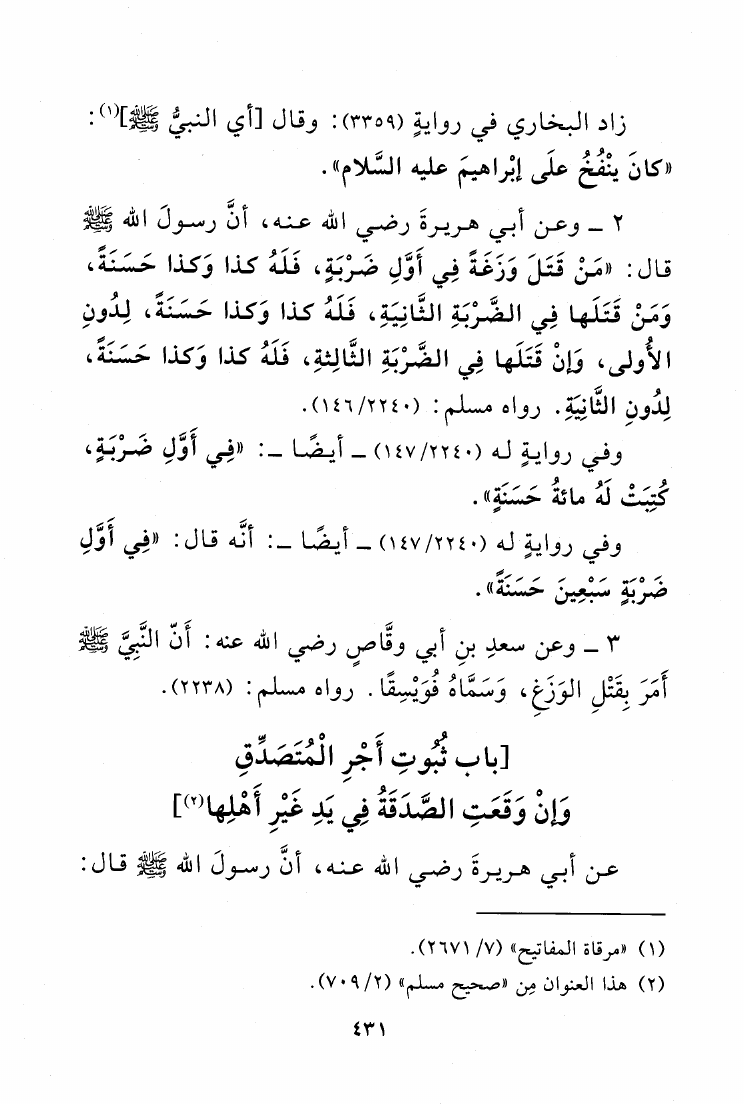 زاد البخاري في روايةٍ (٣٣٥٩): وقال [أي النبيُّ ﷺ](١):
«كانَ يَنْفُخُ علَى إبْراهيمَ عليه السَّلام».
٢ ـ وعن أبي هريرةَ رضي الله عنه، أنَّ رسولَ الله ﷺ
قال: «مَنْ قَتَلَ وَزَغَةً فِي أَوَّلِ ضَرْبَةٍ، فَلَهُ كذا وَكذا حَسَنَةً،
وَمَنْ قَتَلَها فِي الضَّرْبَةِ الثَّانِيَةِ، فَلَهُ كذا وَكذا حَسَنَةً، لِدُونِ
الأُولى، وَإنْ قَتَلَها فِي الضَّرْبَةِ الثَّالِثةِ، فَلَهُ كذا وَكذا حَسَنَةً،
لِدُونِ الثَّانِيَةِ. رواه مسلم: (١٤٦/٢٢٤٠).
وفي روايةٍ له (١٤٧/٢٢٤٠) ـ أيضًا ـ: «فِي أَوَّلِ ضَرْبَةٍ،
كُتِبَتْ لَهُ مائةُ حَسَنَةٍ».
وفي روايةٍ له (١٤٧/٢٢٤٠) ـ أيضًا ـ: أنَّه قال: «فِي أَوَّلِ
ضَرْبَةٍ سَبْعِينَ حَسَنَةً».
٣ ـ وعن سعدِ بنِ أبي وقَّاصٍ رضي الله عنه: أَنّ النَّبِيَّ ﷺ
أَمَرَ بِقَتْلِ الوَزَغِ، وَسَمَّاهُ فُوَيْسِقًا. رواه مسلم: (٢٢٣٨).
[باب ثُبُوتِ أَجْرِ الْمُتَصَدِّقِ
وَإنْ وَقَعَتِ الصَّدَقَةُ فِي يَدِ غَيْرِ أَهْلِها(٢)]
عن أبي هريرةَ رضي الله عنه، أنَّ رسولَ الله ﷺ قال:
(١) «مرقاة المفاتيح» (٢٦٧١/٧).
(٢) هذا العنوان مِن «صحيح مسلم» (٧٠٩/٢).
٤٣١